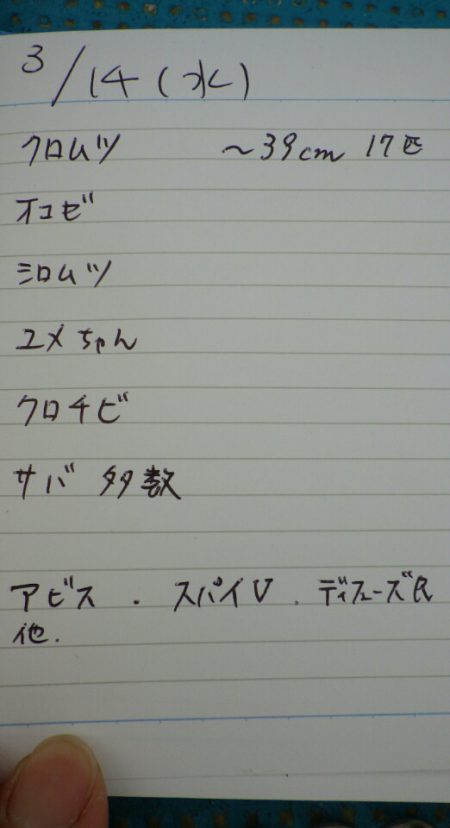 3/14(水)
クロムツ ～39cm 17匹
オコゼ
シロムツ
ユメちゃん
クロチビ
サバ 多数
アビス . スパイV . ディープーズR
他.